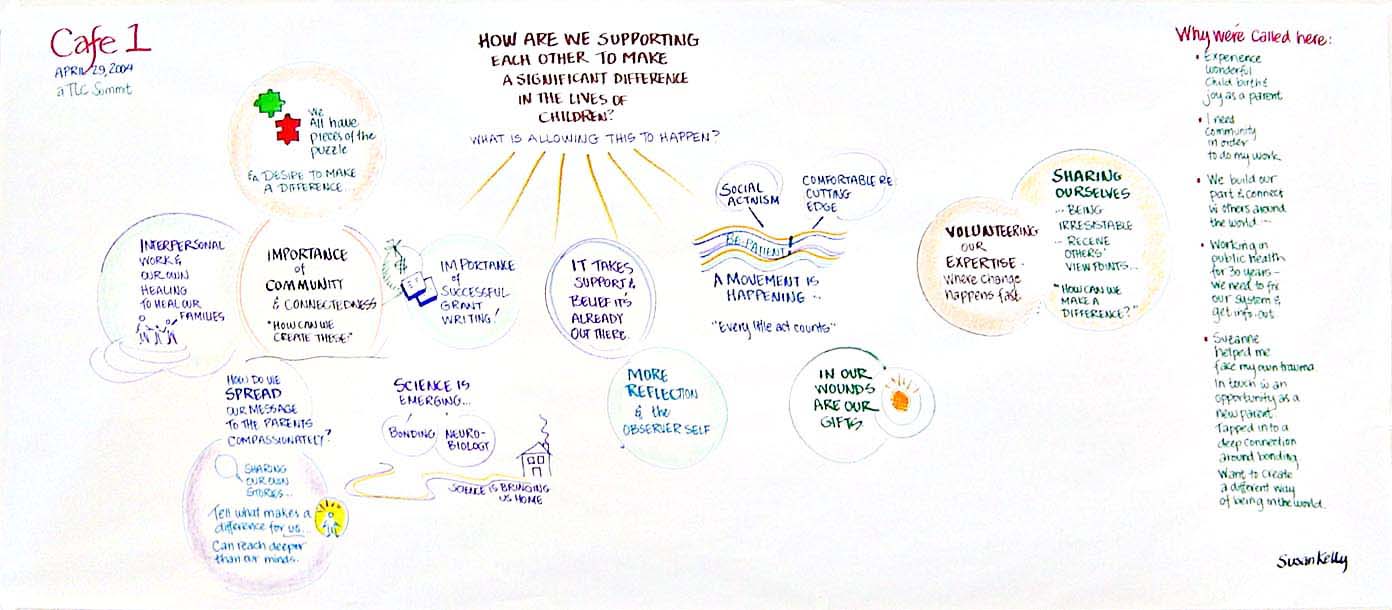 Cafe 1
APRIL 29, 2004
a TLC Summit
HOW ARE WE SUPPORTING
EACH OTHER TO MAKE
A SIGNIFICANT DIFFERENCE
IN THE LIVES OF
CHILDREN?
WHAT IS ALLOWING THIS TO HAPPEN?
We
All have
pieces of the
puzzle
A DESIRE TO MAKE
A DIFFERENCE...
INTERPERSONAL
WORK &
OUR OWN
HEALING
TO HEAL OUR
FAMILIES
IMPORTANCE
of
COMMUNITY
& CONNECTEDNESS
"HOW CAN WE
CREATE THESE"
IMPORTANCE
of
SUCCESSFUL
GRANT
WRITING!
IT TAKES
SUPPORT &
BELIEF IT'S
ALREADY
OUT THERE.
SOCIAL
ACTIVISM
COMFORTABLE RE:
CUTTING
EDGE
BE·PATIENT
A MOVEMENT IS
HAPPENING...
"Every little act counts"
VOLUNTEERING
OUR
EXPERTISE·
where change
happens fast.
SHARING
OURSELVES
... BEING
IRRESISTABLE
... RECEIVE
OTHERS'
VIEWPOINTS...
"HOW CAN WE
MAKE A
DIFFERENCE?"
HOW DO WE
SPREAD
OUR MESSAGE
TO THE PARENTS
COMPASSIONATELY?
SHARING
OUR OWN
STORIES...
Tell what makes a
difference for us...
Can reach deeper
than our minds.
SCIENCE IS
EMERGING...
BONDING
NEURO-
BIOLOGY
SCIENCE IS BRINGING
US HOME
MORE
REFLECTION
& the
OBSERVER SELF
IN OUR
WOUNDS
ARE OUR
GIFTS
Why we're called here:
• Experience
wonderful
Child birth &
joy as a parent
• I need
community
in order
to do my work
• We build our
part & connect
w others around
the world...
• Working in
public health
for 30 years -
we need to fix
our system &
get info out
• Suzanne
helped me
face my own trauma.
In touch w an
opportunity as a
new parent.
Tapped into a
deep connection
around bonding
Want to create
a different way
of being in the world.
Susan Kelly